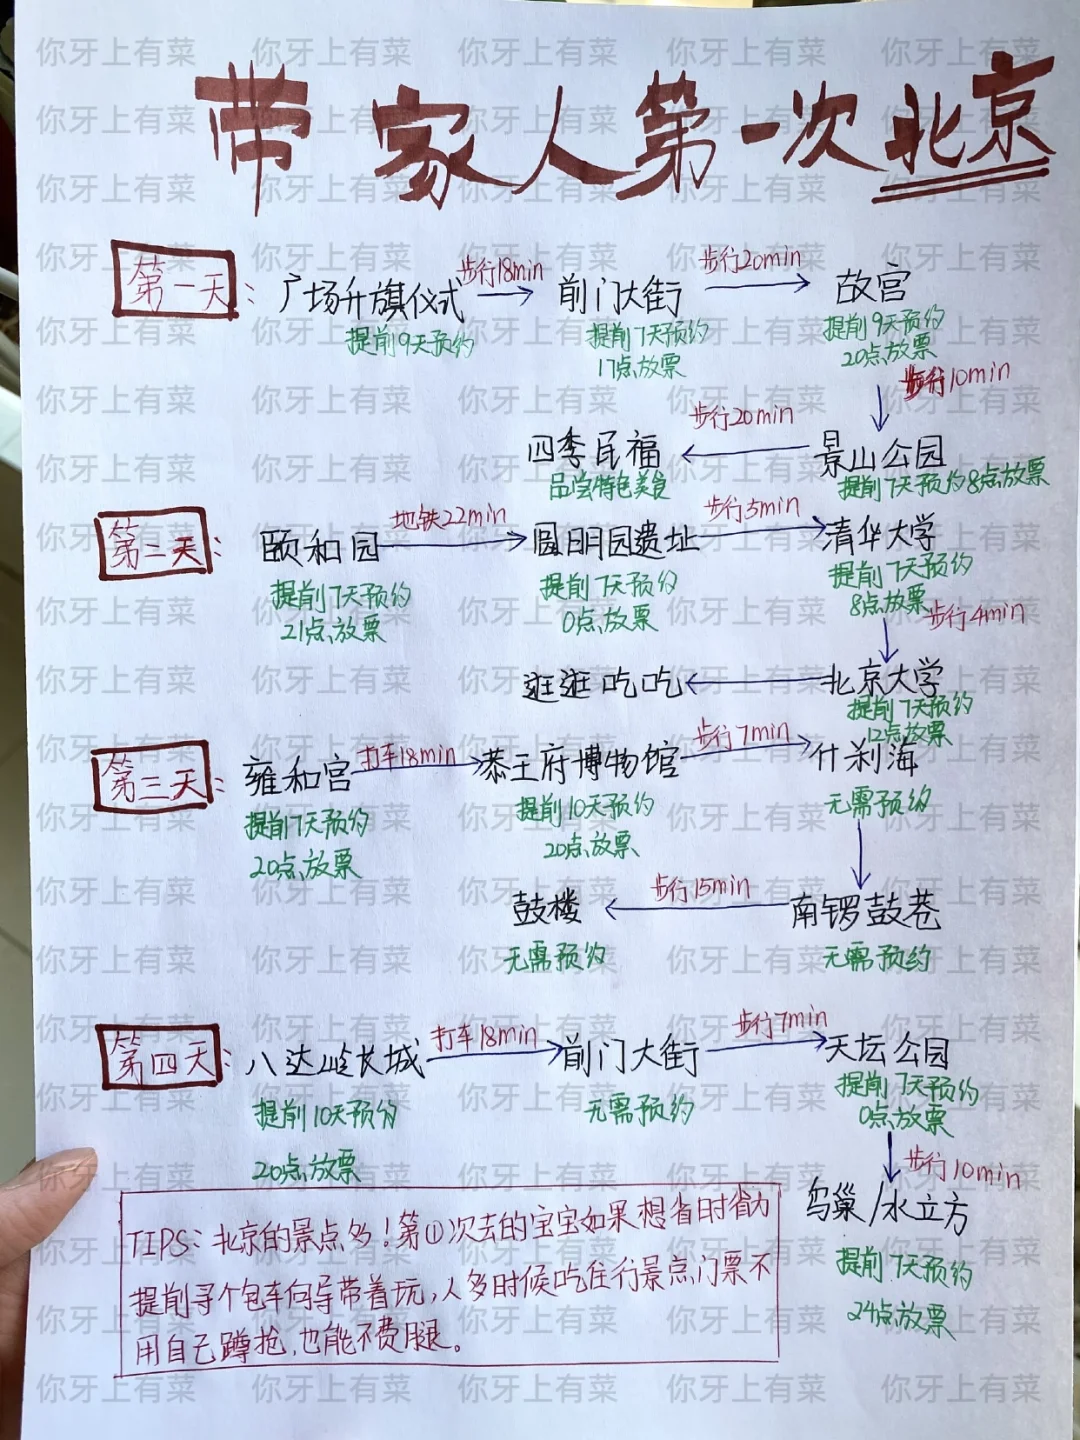 带家人第一次北京
第一天：
广场升旗仪式
提前9天预约
步行18min
前门大街
提前7天预约
17点放票
步行20min
故宫
提前9天预约
20点放票
步行10min
景山公园
提前7天预约8点放票
步行20min
四季民福
品尝特色美食
第二天：
颐和园
提前7天预约
21点放票
地铁22min
圆明园遗址
提前7天预约
0点放票
步行5min
清华大学
提前7天预约
8点放票
步行4min
北京大学
提前7天预约
12点放票
逛逛吃吃
第三天：
雍和宫
提前7天预约
20点放票
打车18min
恭王府博物馆
提前10天预约
20点放票
步行7min
什刹海
无需预约
南锣鼓巷
无需预约
步行15min
鼓楼
无需预约
第四天：
八达岭长城
提前10天预约
20点放票
打车18min
前门大街
无需预约
步行7min
天坛公园
提前7天预约
0点放票
步行10min
鸟巢/水立方
提前7天预约
24点放票
TIPS：北京的景点多！第①次去的宝宝如果想省时省力
提前寻个包车向导带着玩，人多时候吃住行景点门票不
用自己蹲抢，也能不费腿。
你牙上有菜